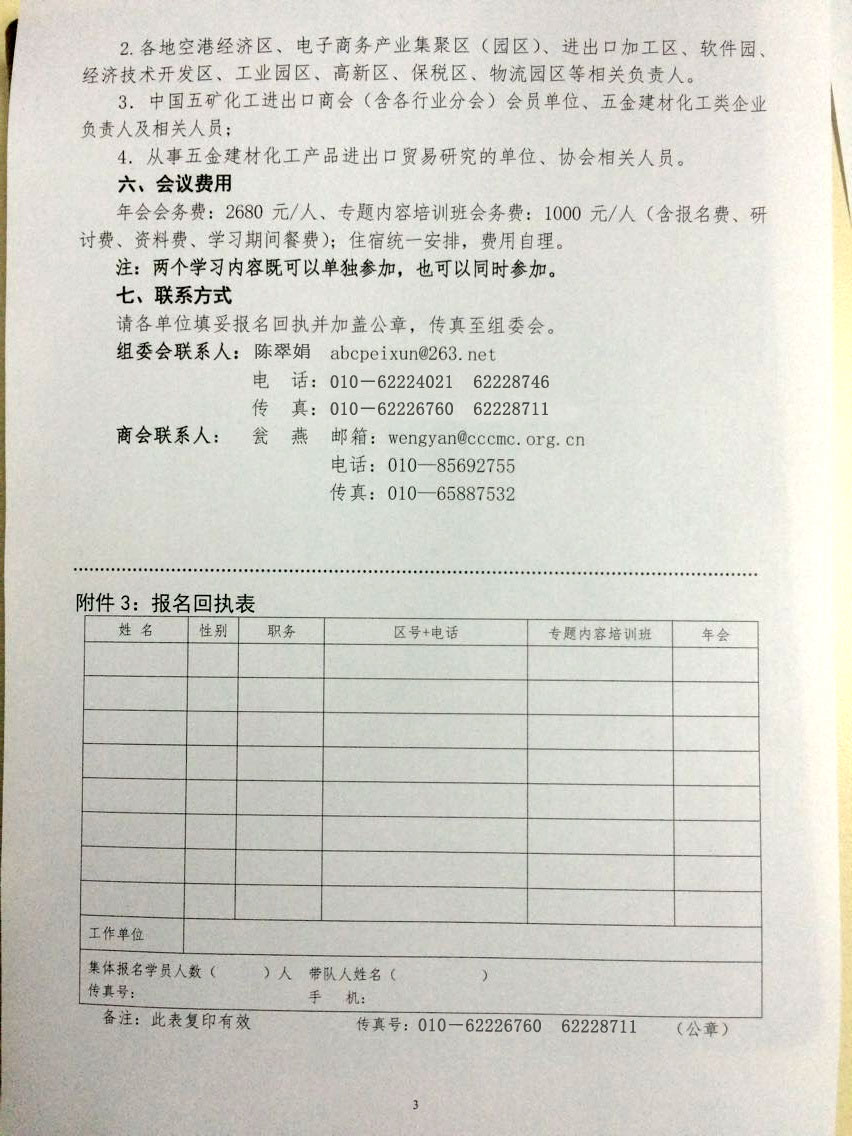 2.各地空港经济区、电子商务产业集聚区（园区）、进出口加工区、软件园、
经济技术开发区、工业园区、高新区、保税区、物流园区等相关负责人。
3．中国五矿化工进出口商会（含各行业分会）会员单位、五金建材化工类企业
负责人及相关人员；
4．从事五金建材化工产品进出口贸易研究的单位、协会相关人员。
六、会议费用
年会会务费：2680 元/人、专题内容培训班会务费：1000 元/人（含报名费、研
讨费、资料费、学习期间餐费）；住宿统一安排，费用自理。
注：两个学习内容既可以单独参加，也可以同时参加。
七、联系方式
请各单位填妥报名回执并加盖公章，传真至组委会。
组委会联系人：陈翠娟 abcpeixun@263.net
电 话：010－62224021 62228746
传 真：010－62226760 62228711
商会联系人： 瓮 燕 邮箱：wengyan@cccmc.org.cn
电话：010—85692755
传真：010—65887532
附件 3：报名回执表
姓 名 性别 职务 区号+电话 专题内容培训班 年会
工作单位
集体报名学员人数（ ）人 带队人姓名（ ）
传真号： 手 机：
备注：此表复印有效 传真号：010－62226760 62228711 （公章）
3